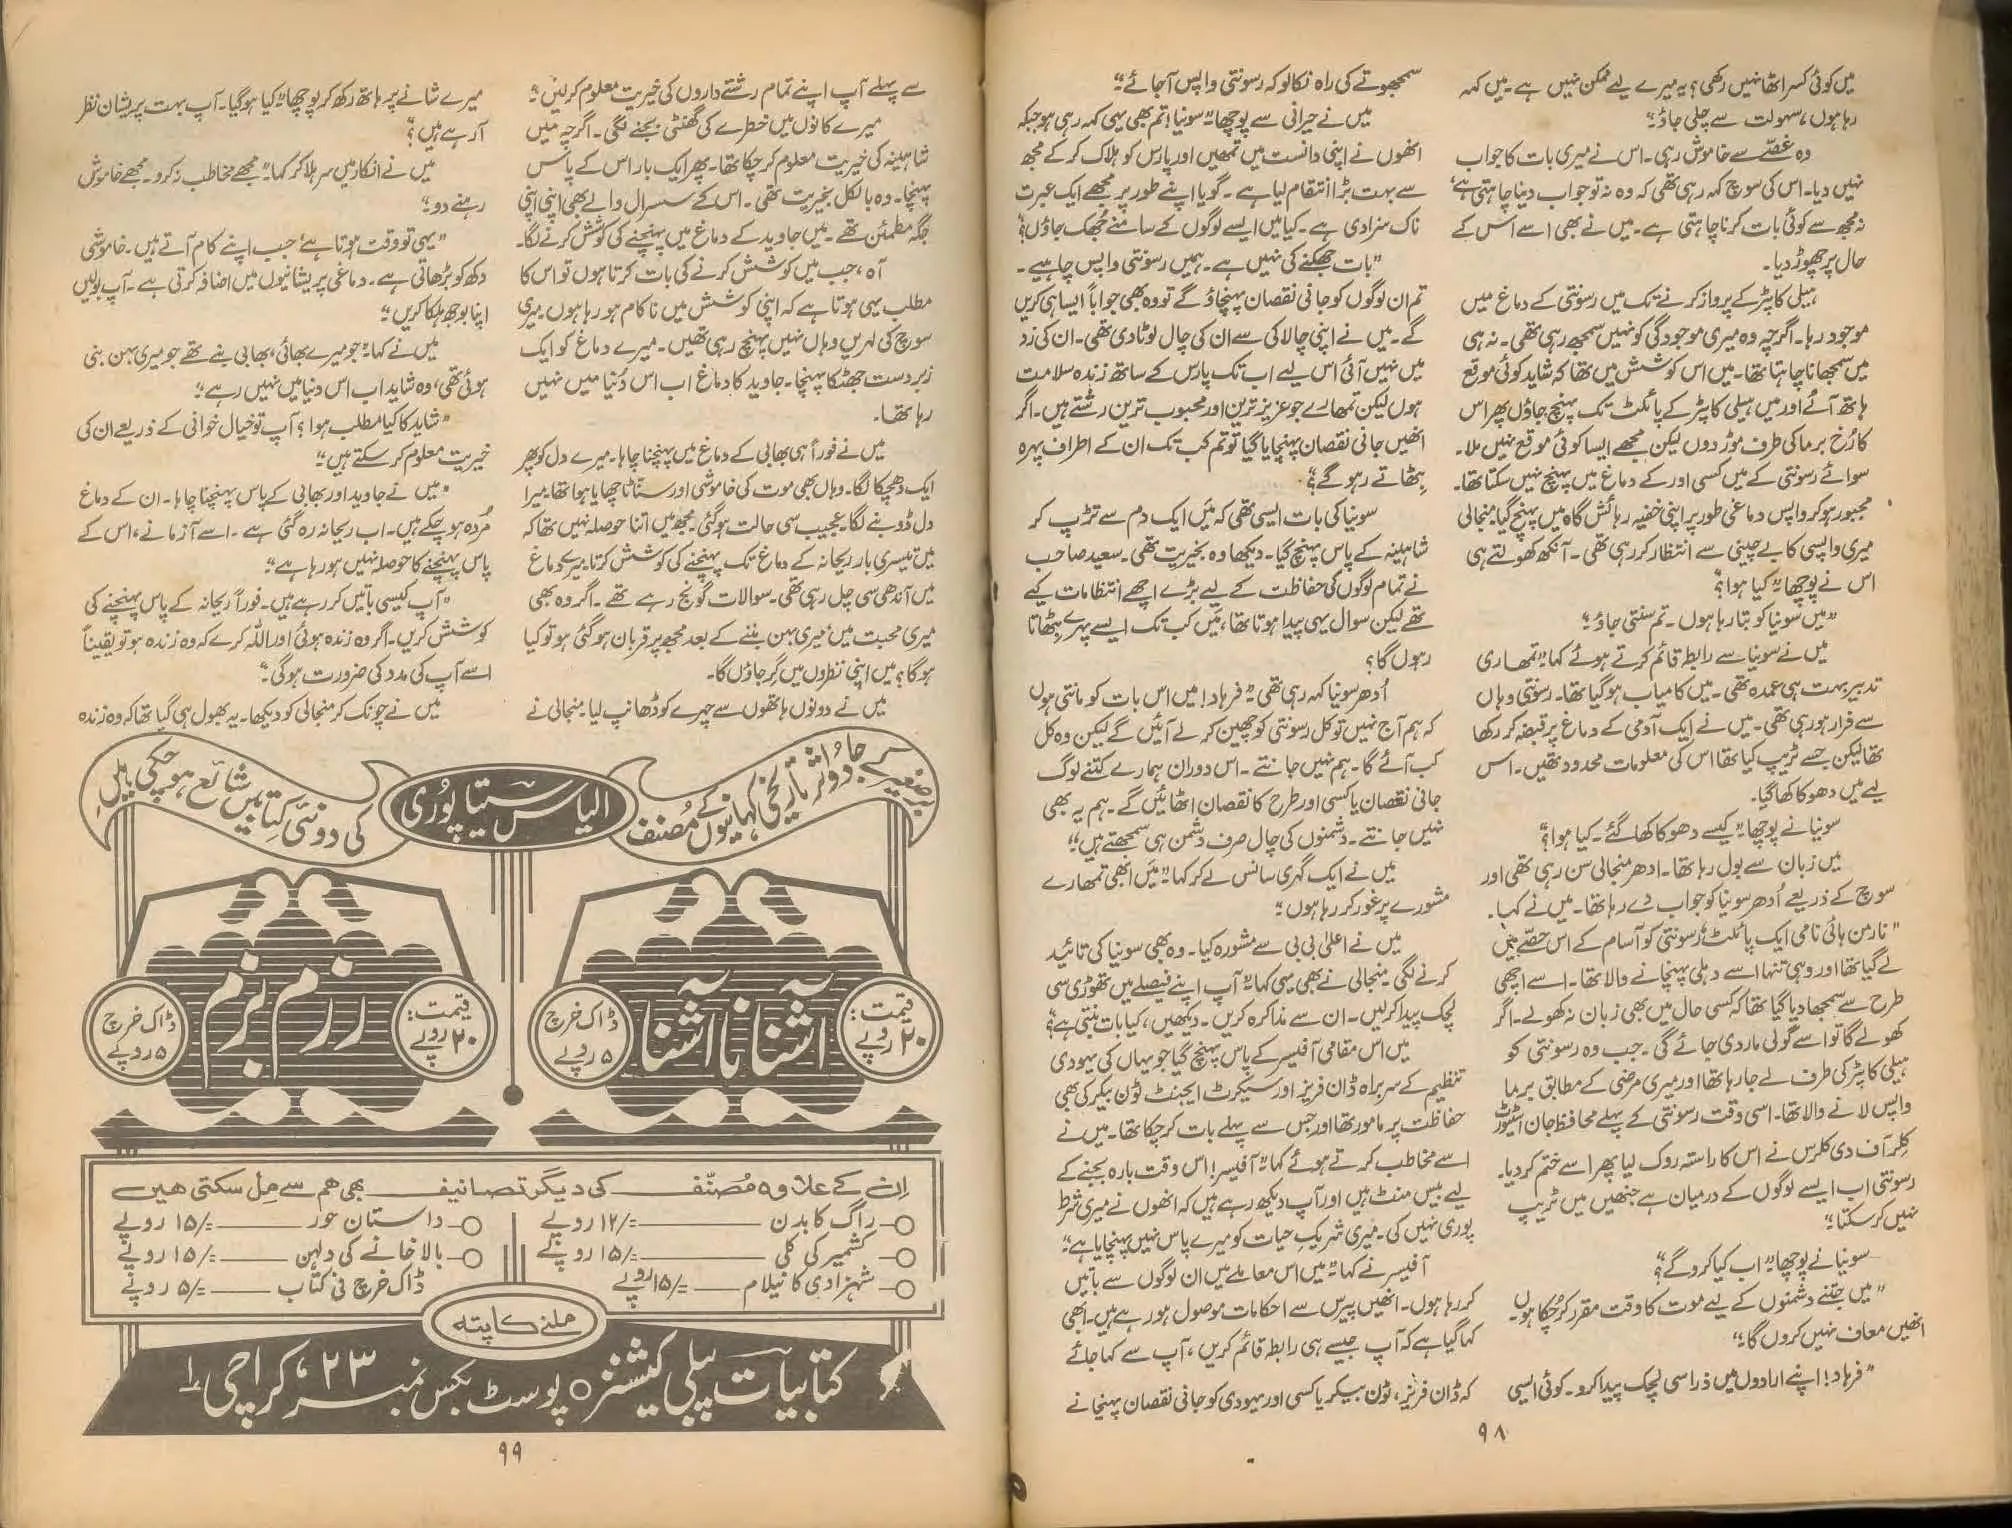 میں کوئی کسر اٹھا نہیں رکھی؟ یہ میرے لیے ممکن نہیں ہے۔ میں کہہ
رہا ہوں، سہولت سے چلی جاؤ۔“
وہ غصّے سے خاموش رہی۔ اس نے میری بات کا جواب
نہیں دیا۔ اس کی سوچ کہہ رہی تھی کہ وہ نہ تو جواب دینا چاہتی ہے،
نہ مجھ سے کوئی بات کرنا چاہتی ہے۔ میں نے بھی اسے اس کے
حال پر چھوڑ دیا۔
ہیلی کاپٹر کے پرواز کرنے تک میں رسونتی کے دماغ میں
موجود رہا۔ اگرچہ وہ میری موجودگی کو نہیں سمجھ رہی تھی۔ نہ ہی
میں سمجھانا چاہتا تھا۔ میں اس کوشش میں تھا کہ شاید کوئی موقع
ہاتھ آئے اور میں ہیلی کاپٹر کے پائلٹ تک پہنچ جاؤں پھر اس
کا رُخ برما کی طرف موڑ دوں لیکن مجھے ایسا کوئی موقع نہیں ملا۔
سوائے رسونتی کے میں کسی اور کے دماغ میں پہنچ نہیں سکتا تھا۔
مجبور ہو کر واپس دماغی طور پر اپنی خفیہ رہائش گاہ میں پہنچ گیا۔ منجالی
میری واپسی کا بے چینی سے انتظار کر رہی تھی۔ آنکھ کھولتے ہی
اس نے پوچھا ”کیا ہوا؟“
”میں سونیا کو بتا رہا ہوں۔ تم سنتی جاؤ۔“
میں نے سونیا سے رابطہ قائم کرتے ہوئے کہا ”تمھاری
تدبیر بہت ہی عمدہ تھی۔ میں کامیاب ہو گیا تھا۔ رسونتی وہاں
سے فرار ہو رہی تھی۔ میں نے ایک آدمی کے دماغ پر قبضہ کر رکھا
تھا لیکن جسے ٹریپ کیا تھا اس کی معلومات محدود تھیں۔ اس
لیے میں دھوکا کھا گیا۔
سونیا نے پوچھا ”کیسے دھوکا کھا گئے۔ کیا ہوا؟“
میں زبان سے بول رہا تھا۔ ادھر منجالی سن رہی تھی اور
سوچ کے ذریعے اُدھر سونیا کو جواب دے رہا تھا۔ میں نے کہا۔
”نارمن ہائی نامی ایک پائلٹ رسونتی کو آسام کے اس حصّے میں
لے گیا تھا اور وہی تنہا اسے دہلی پہنچانے والا تھا۔ اسے اچھی
طرح سے سمجھا دیا گیا تھا کہ کسی حال میں بھی زبان نہ کھولے۔ اگر
کھولے گا تو اسے گولی مار دی جائے گی۔ جب وہ رسونتی کو
ہیلی کاپٹر کی طرف لے جا رہا تھا اور میری مرضی کے مطابق برما
واپس لانے والا تھا۔ اسی وقت رسونتی کے پہلے محافظ جان اسٹیورٹ
کلر آف دی کلرس نے اس کا راستہ روک لیا پھر اسے ختم کر دیا۔
رسونتی اب ایسے لوگوں کے درمیان ہے جنھیں میں ٹریپ
نہیں کر سکتا۔“
سونیا نے پوچھا ”اب کیا کرو گے؟“
”میں جتنے دشمنوں کے لیے موت کا وقت مقرر کر چُکا ہوں
انھیں معاف نہیں کروں گا۔“
”فرہاد! اپنے ارادوں میں ذرا سی لچک پیدا کرو۔ کوئی ایسی
سمجھوتے کی راہ نکالو کہ رسونتی واپس آ جائے۔“
میں نے حیرانی سے پوچھا ”سونیا! تم بھی یہی کہہ رہی ہو جبکہ
انھوں نے اپنی دانست میں تمھیں اور پارس کو ہلاک کر کے مجھ
سے بہت بڑا انتقام لیا ہے۔ گویا اپنے طور پر مجھے ایک عبرت
ناک سزا دی ہے۔ کیا میں ایسے لوگوں کے سامنے جُھک جاؤں؟“
”بات جھکنے کی نہیں ہے۔ ہمیں رسونتی واپس چاہیے۔
تم ان لوگوں کو جانی نقصان پہنچاؤ گے تو وہ بھی جواباً ایسا ہی کریں
گے۔ میں نے اپنی چالاکی سے ان کی چال لوٹا دی تھی۔ ان کی زد
میں نہیں آئی اس لیے اب تک پارس کے ساتھ زندہ سلامت
ہوں لیکن تمھارے جو عزیز ترین اور محبوب ترین رشتے ہیں۔ اگر
انھیں جانی نقصان پہنچایا گیا تو تم کب تک ان کے اطراف پہرہ
بِٹھاتے رہو گے؟“
سونیا کی بات ایسی تھی کہ مَیں ایک دم سے تڑپ کر
شاہینہ کے پاس پہنچ گیا۔ دیکھا وہ بخیریت تھی۔ سعید صاحب
نے تمام لوگوں کی حفاظت کے لیے بڑے اچھے انتظامات کیے
تھے لیکن سوال یہی پیدا ہوتا تھا، مَیں کب تک ایسے پہرے بِٹھاتا
رہوں گا؟
اُدھر سونیا کہہ رہی تھی ”فرہاد! میں اس بات کو مانتی ہوں
کہ ہم آج نہیں تو کل رسونتی کو چھین کر لے آئیں گے لیکن وہ کل
کب آئے گا۔ ہم نہیں جانتے۔ اس دوران ہمارے کتنے لوگ
جانی نقصان یا کسی اور طرح کا نقصان اٹھائیں گے۔ ہم یہ بھی
نہیں جانتے۔ دشمنوں کی چال صرف دشمن ہی سمجھتے ہیں“
میں نے ایک گہری سانس لے کر کہا ”مَیں ابھی تمھارے
مشورے پر غور کر رہا ہوں۔“
میں نے اعلیٰ بی بی سے مشورہ کیا۔ وہ بھی سونیا کی تائید
کرنے لگی۔ منجالی نے بھی یہی کہا ”آپ اپنے فیصلے میں تھوڑی سی
لچک پیدا کرلیں۔ ان سے مذاکرہ کریں۔ دیکھیں، کیا بات بنتی ہے؟“
میں اس مقامی آفیسر کے پاس پہنچ گیا جو یہاں کی یہودی
تنظیم کے سربراہ ڈان فریز اور سیکرٹ ایجنٹ ٹون بیکر کی بھی
حفاظت پر مامور تھا اور جس سے پہلے بات کر چکا تھا۔ میں نے
اسے مخاطب کرتے ہوئے کہا ”آفیسر! اس وقت بارہ بجنے کے
لیے بیس منٹ ہیں اور آپ دیکھ رہے ہیں کہ انھوں نے میری شرط
پوری نہیں کی۔ میری شریکِ حیات کو میرے پاس نہیں پہنچایا ہے“
آفیسر نے کہا ”میں اس معاملے میں ان لوگوں سے باتیں
کر رہا ہوں۔ انھیں پیرس سے احکامات موصول ہو رہے ہیں۔ ابھی
کہا گیا ہے کہ آپ جیسے ہی رابطہ قائم کریں، آپ سے کہا جائے
کہ ڈان فریز، ٹون بیکر یا کسی اور یہودی کو جانی نقصان پہنچانے
۹۸
سے پہلے آپ اپنے تمام رشتے داروں کی خیریت معلوم کرلیں۔“
میرے کانوں میں خطرے کی گھنٹی بجنے لگی۔ اگرچہ میں
شاہینہ کی خیریت معلوم کر چکا تھا۔ پھر ایک بار اس کے پاس
پہنچا۔ وہ بالکل بخیریت تھی۔ اس کے سسرال والے بھی اپنی اپنی
جگہ مطمئن تھے۔ میں جاوید کے دماغ میں پہنچنے کی کوشش کرنے لگا۔
آہ، جب میں کوشش کرنے کی بات کرتا ہوں تو اس کا
مطلب یہی ہوتا ہے کہ اپنی کوشش میں ناکام ہو رہا ہوں۔ میری
سوچ کی لہریں وہاں نہیں پہنچ رہی تھیں۔ میرے دماغ کو ایک
زبردست جھٹکا پہنچا۔ جاوید کا دماغ اب اس دُنیا میں نہیں
رہا تھا۔
میں نے فوراً ہی بھابی کے دماغ میں پہنچنا چاہا۔ میرے دل کو پھر
ایک دھچکا لگا۔ وہاں بھی موت کی خاموشی اور سنّاٹا چھایا ہوا تھا۔ میرا
دل ڈوبنے لگا۔ عجیب سی حالت ہو گئی۔ مجھ میں اتنا حوصلہ نہیں تھا کہ
میں تیسری بار ریحانہ کے دماغ تک پہنچنے کی کوشش کرتا۔ میرے دماغ
میں آندھی سی چل رہی تھی۔ سوالات گونج رہے تھے۔ اگر وہ بھی
میری محبت میں، میری بہن بننے کے بعد مجھ پر قربان ہو گئی ہو تو کیا
ہوگا؟ میں اپنی نظروں میں گر جاؤں گا۔
میں نے دونوں ہاتھوں سے چہرے کو ڈھانپ لیا۔ منجالی نے
میرے شانے پر ہاتھ رکھ کر پوچھا ”کیا ہو گیا۔ آپ بہت پریشان نظر
آ رہے ہیں؟“
میں نے انکار میں سر ہلا کر کہا ”مجھے مخاطب نہ کرو۔ مجھے خاموش
رہنے دو۔“
”یہی تو وقت ہوتا ہے، جب اپنے کام آتے ہیں۔ خاموشی
دکھ کو بڑھاتی ہے۔ دماغی پریشانیوں میں اضافہ کرتی ہے۔ آپ بولیں
اپنا بوجھ ہلکا کریں۔“
میں نے کہا ”جو میرے بھائی، بھابی بنے تھے جو میری بہن بنی
ہوئی تھی، وہ شاید اب اس دنیا میں نہیں رہے۔“
”شاید کا کیا مطلب ہوا؟ آپ تو خیال خوانی کے ذریعے ان کی
خیریت معلوم کر سکتے ہیں۔“
”میں نے جاوید اور بھابی کے پاس پہنچنا چاہا۔ ان کے دماغ
مُردہ ہو چکے ہیں۔ اب ریحانہ رہ گئی ہے۔ اسے آزمانے، اس کے
پاس پہنچنے کا حوصلہ نہیں ہو رہا ہے۔“
”آپ کیسی باتیں کر رہے ہیں۔ فوراً ریحانہ کے پاس پہنچنے کی
کوشش کریں۔ اگر وہ زندہ ہوئی اور اللہ کرے کہ وہ زندہ ہو تو یقیناً
اسے آپ کی مدد کی ضرورت ہوگی۔“
میں نے چونک کر منجالی کو دیکھا۔ یہ بھول ہی گیا تھا کہ وہ زندہ
برصغیر کے جادو اثر تاریخی کہانیوں کے مُصنف
الیاس سیتا پوری
کی دو نئی کتابیں شائع ہو چکی ہیں
آشنا نا آشنا
قیمت: ۲۰ روپے
ڈاک خرچ ۵ روپے
رزم بزم
قیمت: ۲۰ روپے
ڈاک خرچ ۵ روپے
اِن کے علاوہ مُصنّف کی دیگر تصانیف بھی ہم سے مل سکتی ہیں
راگ کا بدن ۱۲/= روپے
کشمیر کی کلی ۱۵/= روپے
شہزادی کا نیلام ۱۵/= روپے
داستان حور ۱۵/= روپے
بالا خانے کی دلہن ۱۵/= روپے
ڈاک خرچ فی کتاب ۵/= روپے
ملنے کا پتہ
کتابیات پبلی کیشنز ○ پوسٹ بکس نمبر ۲۳، کراچی ۱
۹۹